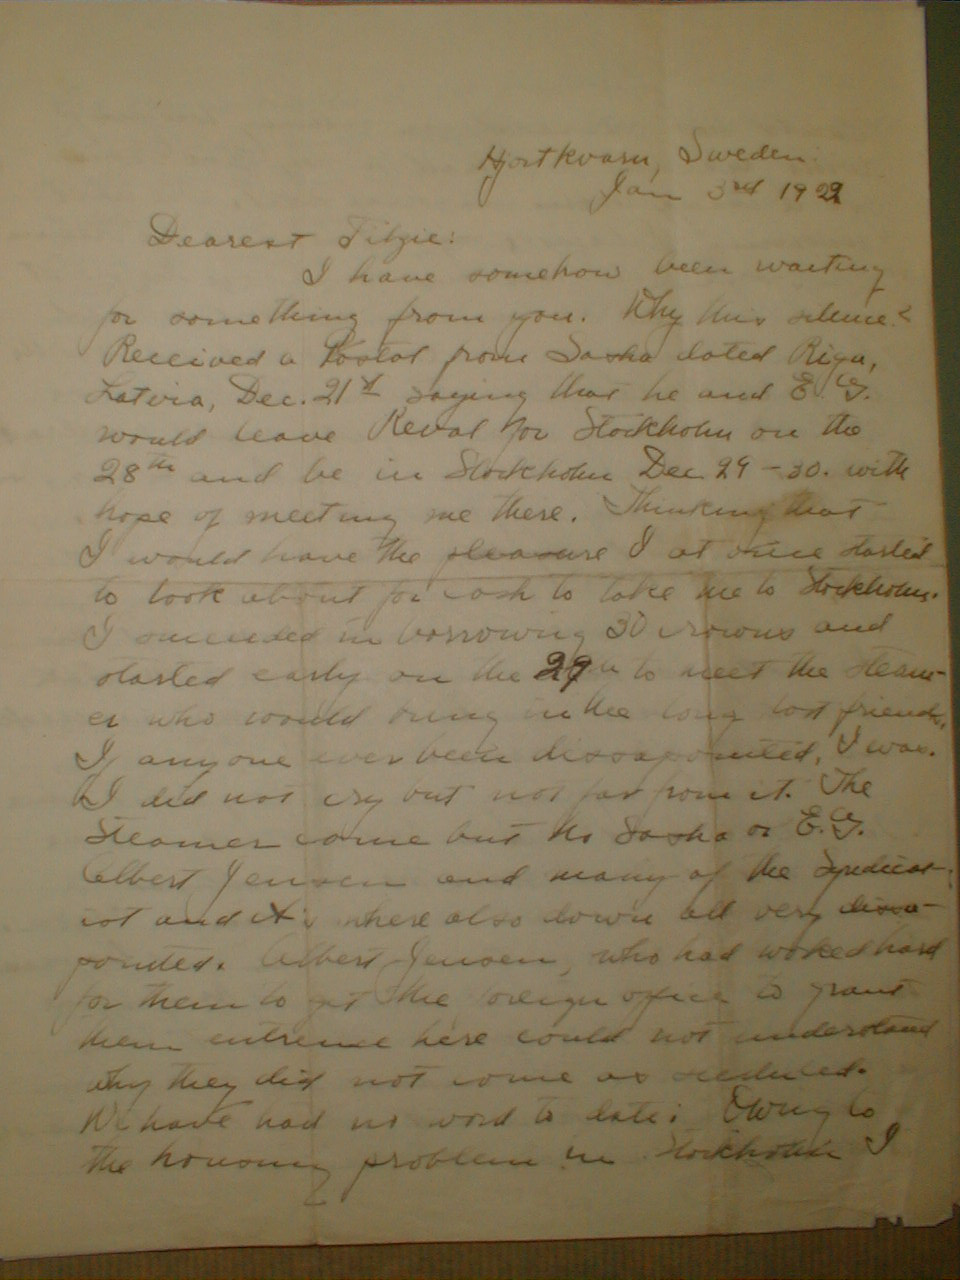 Hjortkvarn, Sweden.
Jan 3rd 1922
Dearest Fitzie:
I have somehow been waiting
for something from you. Why this silence?
Received a Postal from Sasha dated Riga,
Latvia, Dec. 21st saying that he and E.G.
would leave Reval for Stockholm on the
28th and be in Stockholm Dec 29-30. with
hope of meeting me there. Thinking that
I would have the pleasure I at once started
to look about for cash to take me to Stockholm.
I succeeded in borrowing 30 crowns and
started early on the 29th to meet the steam-
er who would bring in the long lost friends.
If anyone ever been dissapointed, I was.
I did not cry but not far from it. The
Steamer came but no Sasha or E.G.
Albert Jensen and many of the Syndical-
ist and A's where also down all very dissa-
pointed. Albert Jensen, who had worked hard
for them to get the foreign office to grant
them entrence here could not understand
why they did not come as
We have had no word to date. Owing to
the housing problem in Stockholm I